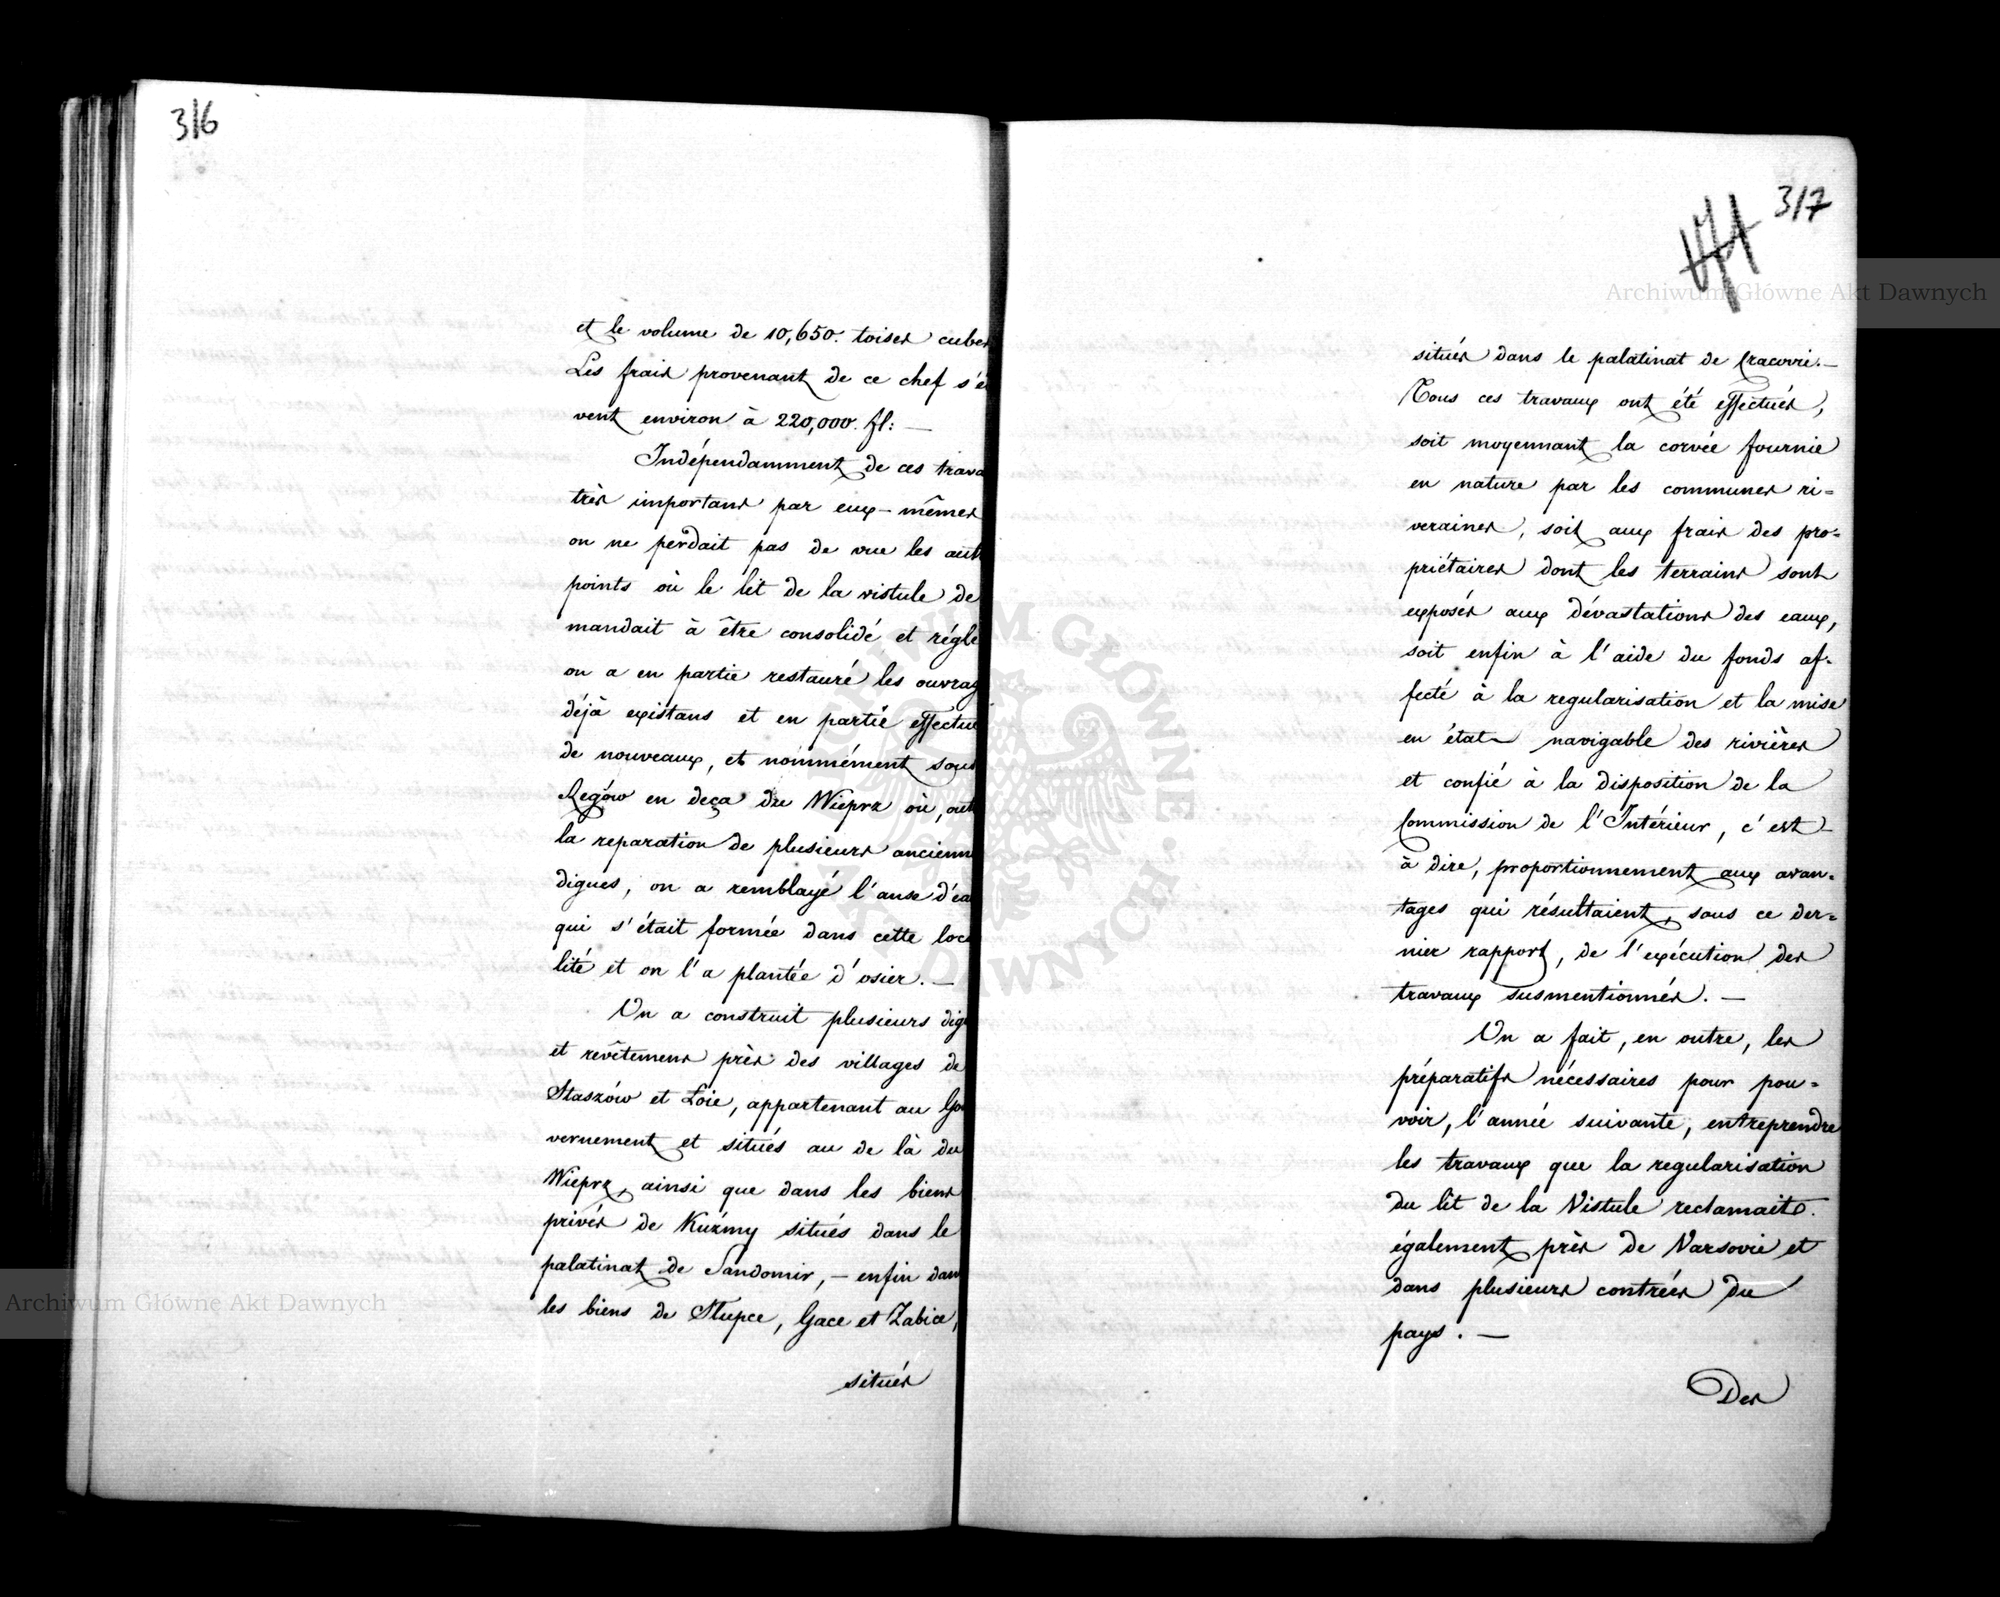 316
et le volume de 10,650. toises cubes
Les frais provenant de ce chef s'é
vent environ à 220,000. fl: —
Indépendamment de ces trava
très importans par eux-mêmes
on ne perdait pas de vue les aut
points où le lit de la vistule de
mandait à être consolidé et réglé
on a en partie restauré les ouvrag
déjà existans et en partie effectué
de nouveaux, et nommément sous
Regów en deça du Wieprz où, out
la reparation de plusieurs ancienn
digues, on a remblayé l'anse d'ea
qui s'était formée dans cette loca
lité et on l'a plantée d'osier. —
On a construit plusieurs digu
et revêtemens près des villages de
Staszów et Łoie, appartenant au Go
vernement et situés au de là du
Wieprz, ainsi que dans les biens
privés de Kuźmy situés dans le
palatinat de Sandomir, — enfin dans
les biens de Słupce, Gace et Żabice,
situés
317
situés dans le palatinat de Cracovie. —
Tous ces travaux ont été effectués,
soit moyennant la corvée fournie
en nature par les communes ri=
veraines, soit aux frais des pro=
priétaires dont les terrains sont
exposés aux dévastations des eaux,
soit enfin à l'aide du fonds af=
fecté à la regularisation et la mise
en état navigable des rivières
et confié à la disposition de la
Commission de l'Intérieur, c'est
à dire, proportionnement aux avan=
tages qui résultaient, sous ce der=
nier rapport, de l'exécution des
travaux susmentionnés. —
On a fait, en outre, les
préparatifs nécessaires pour pou=
voir, l'année suivante, entreprendre
les travaux que la regularisation
du lit de la Vistule reclamait
également près de Varsovie et
dans plusieurs contrées du
pays. —
Des
Archiwum Główne Akt Dawnych
Archiwum Główne Akt Dawnych
ARCHIWUM GŁÓWNE AKT DAWNYCH